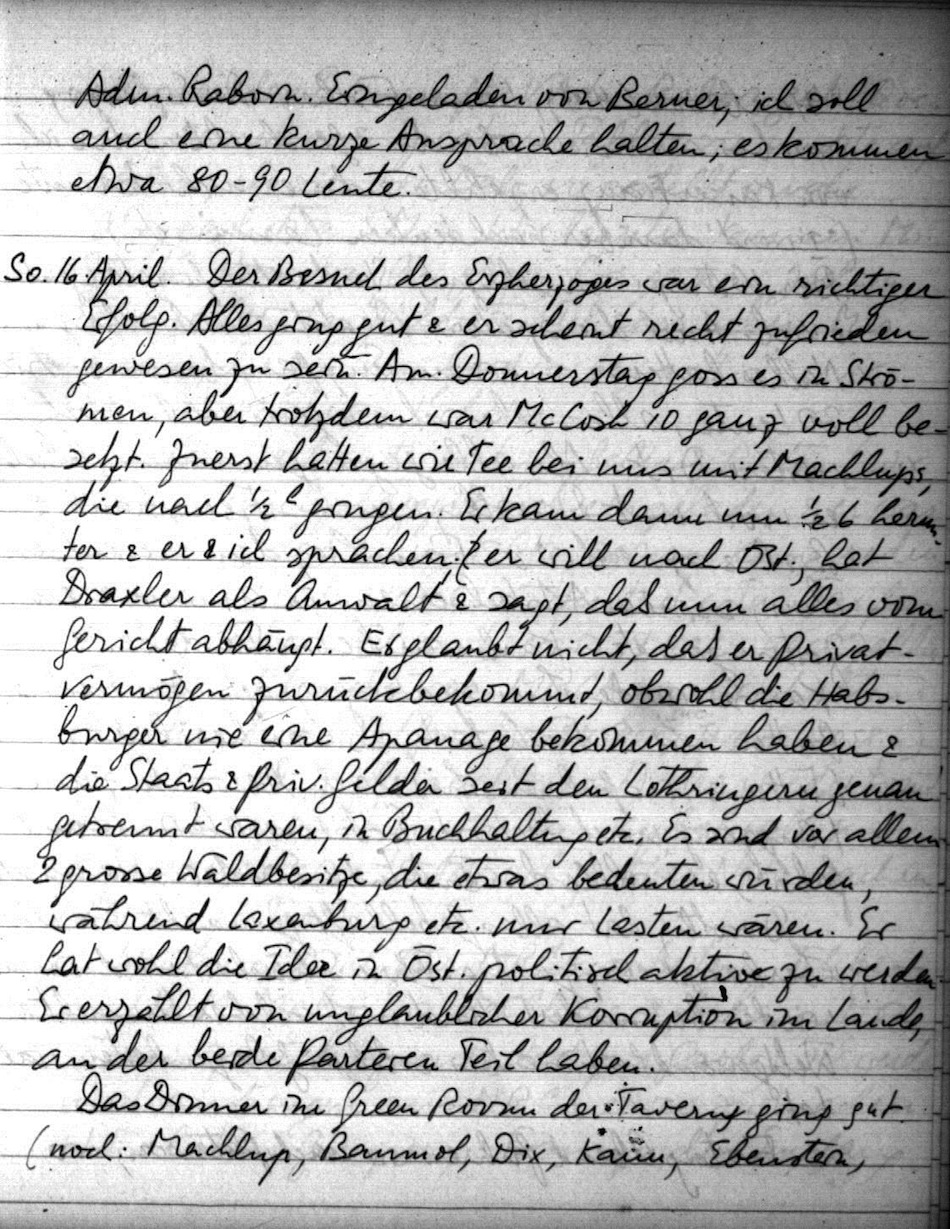 Adm. Raborn. Eingeladen von Berner; ich soll
auch eine kurze Ansprache halten; es kommen
etwa 80-90 Leute.
So. 16. April. Der Besuch des Erzherzoges war ein richtiger
Erfolg. Alles ging gut & er scheint recht zufrieden
gewesen zu sein. Am Donnerstag goss es in Strö-
men, aber trotzdem war McCosh 10 ganz voll be-
setzt. Zuerst hatten wir Tee bei uns mit Machlups,
die nach ½ gingen. Er kam dann um ½ 6 herun-
ter & er & ich sprachen. er will nach Öst., hat
Draxler als Anwalt & sagt, daß nun alles vom
Gericht abhängt. Er glaubt nicht, daß er Privat-
vermögen zurückbekommt, obwohl die Habs-
burger nie eine Apanage bekommen haben &
die Staats & Priv. Gelder seit den Lothringern genau
getrennt waren, in Buchhaltung etc. Es sind vor allem
2 grosse Waldbesitze, die etwas bedeuten würden,
während Laxenburg etc. nur Lasten wären. Er
hat wohl die Idee in Öst. politisch aktive zu werden.
Er erzählt von unglaublicher Korruption im Lande,
an der beide Parteien Teil haben.
Das Dinner im Green Room der Taverny ging gut
(noch: Machlup, Baumol, Dix, Kann, Ebenstein,